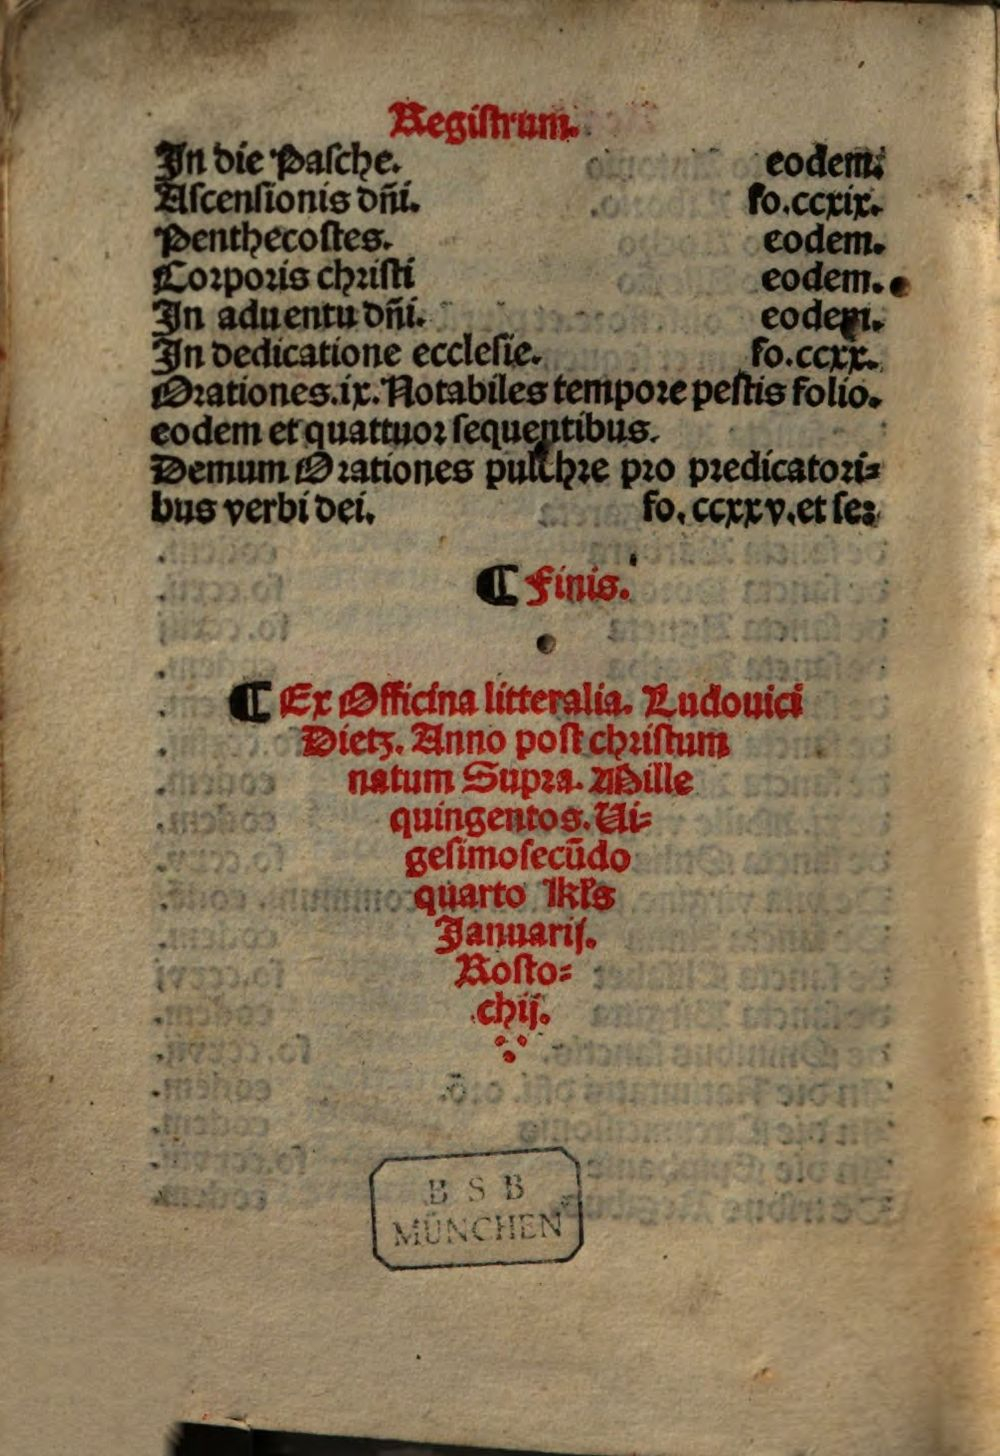 Regiſtrum.
In die Paſche. eodem.
Aſcenſionis dn̄i. fo.ccxix.
Penthecoſtes. eodem.
Corporis chꝛiſti eodem.
In aduentu dn̄i. eodem.
In dedicatione eccleſie. fo.ccxx.
Oꝛationes.ix. Notabiles tempoꝛe peſtis folio.
eodem et quattuoꝛ ſequentibus.
Demum Oꝛationes pulchꝛe pꝛo pꝛedicatoꝛi⸗
bus verbi dei. fo. ccxxv.et ſeꝫ
¶ Finis.
¶ Ex Officina litteralia. Ludouici
Dietz. Anno poſt chꝛiſtum
natum Supꝛa. Mille
quingentos. Ui⸗
geſimoſecūdo
quarto kl̄s
Januarij.
Roſto⸗
chij.
B S B
MÜNCHEN